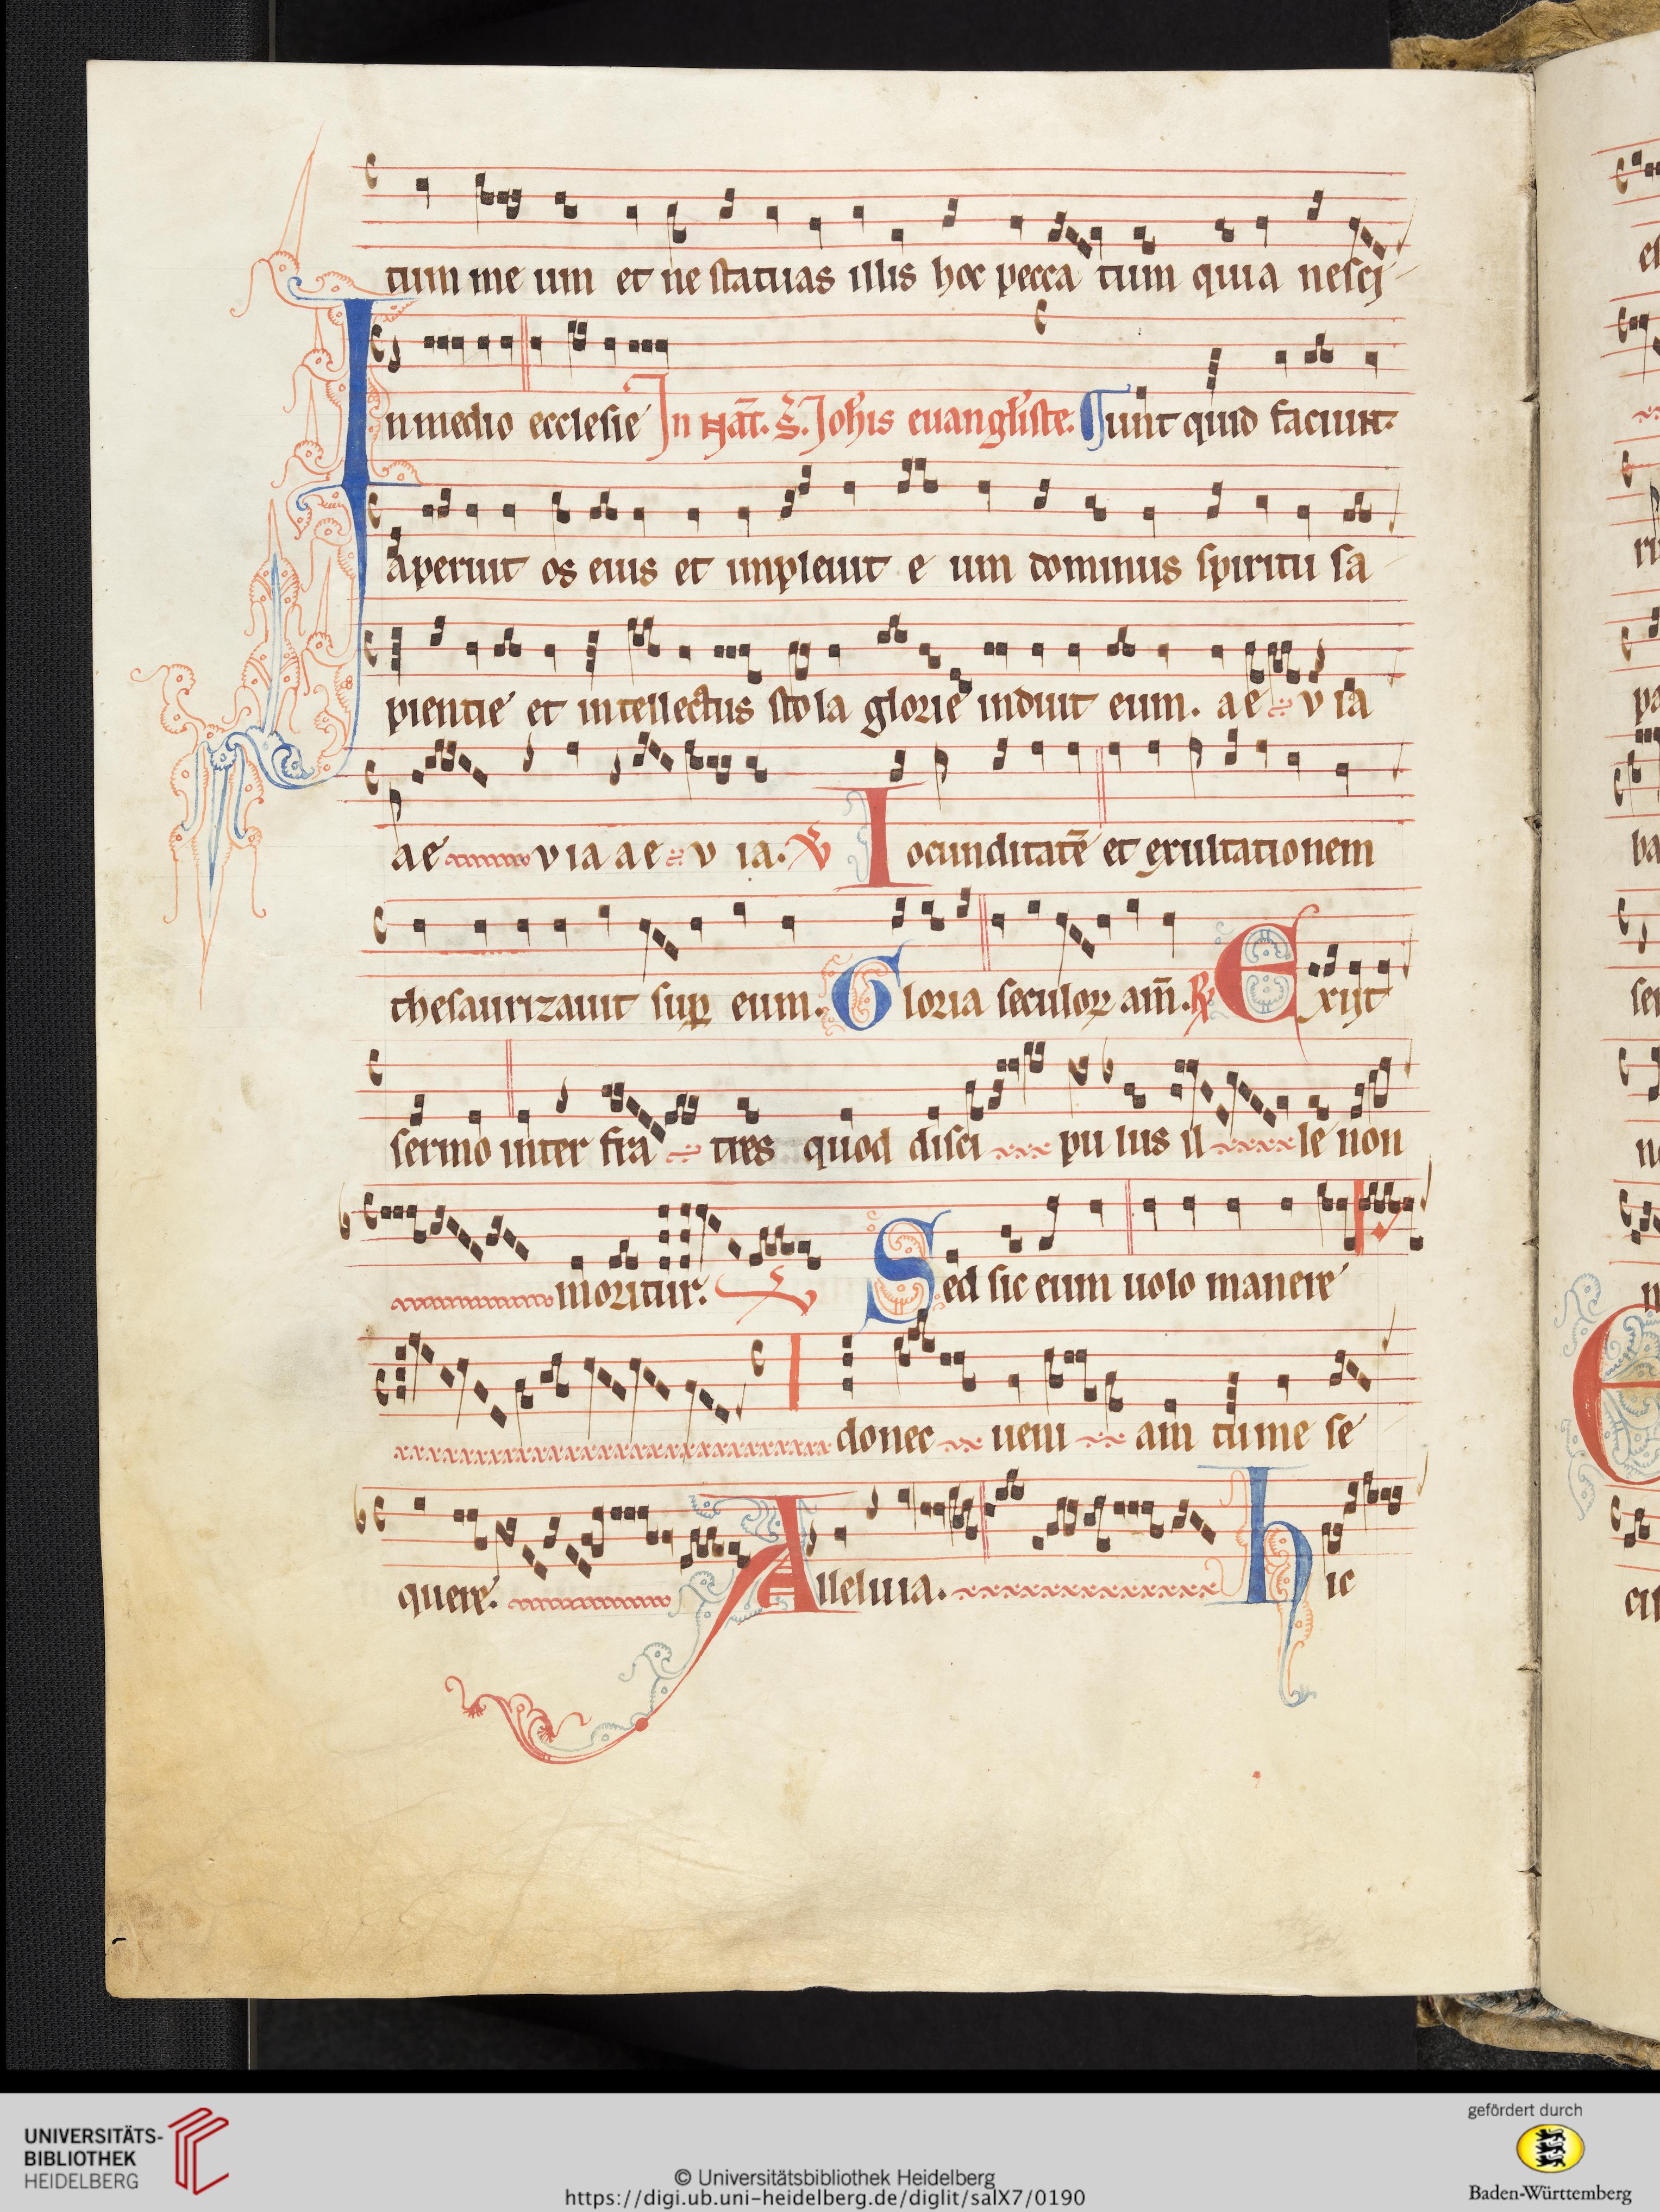 tum me um et ne statuas illis hoc pecca tum quia nesci
In medio ecclesie In Nat̄. S. Joh̄is euangl̄iste. sunt quid faciunt.
aperuit os eius et impleuit e um dominus spiritu sa
pientie et intellectus stola glorie induit eum. ae v ia
ae v ia ae v ia. V Iocunditatē et exultationem
thesaurizauit sup̱ eum. Gloria seculoꝝ am̄. ℟ Exijt
sermo inter fra tres quod disci pu lus il le non
moritur. Sed sic eum uolo manere
donec ueni am tu me se
quere. Alleluia. Hic
UNIVERSITÄTS-
BIBLIOTHEK
HEIDELBERG
© Universitätsbibliothek Heidelberg
https://digi.ub.uni-heidelberg.de/diglit/salX7/0190
gefördert durch
Baden-Württemberg